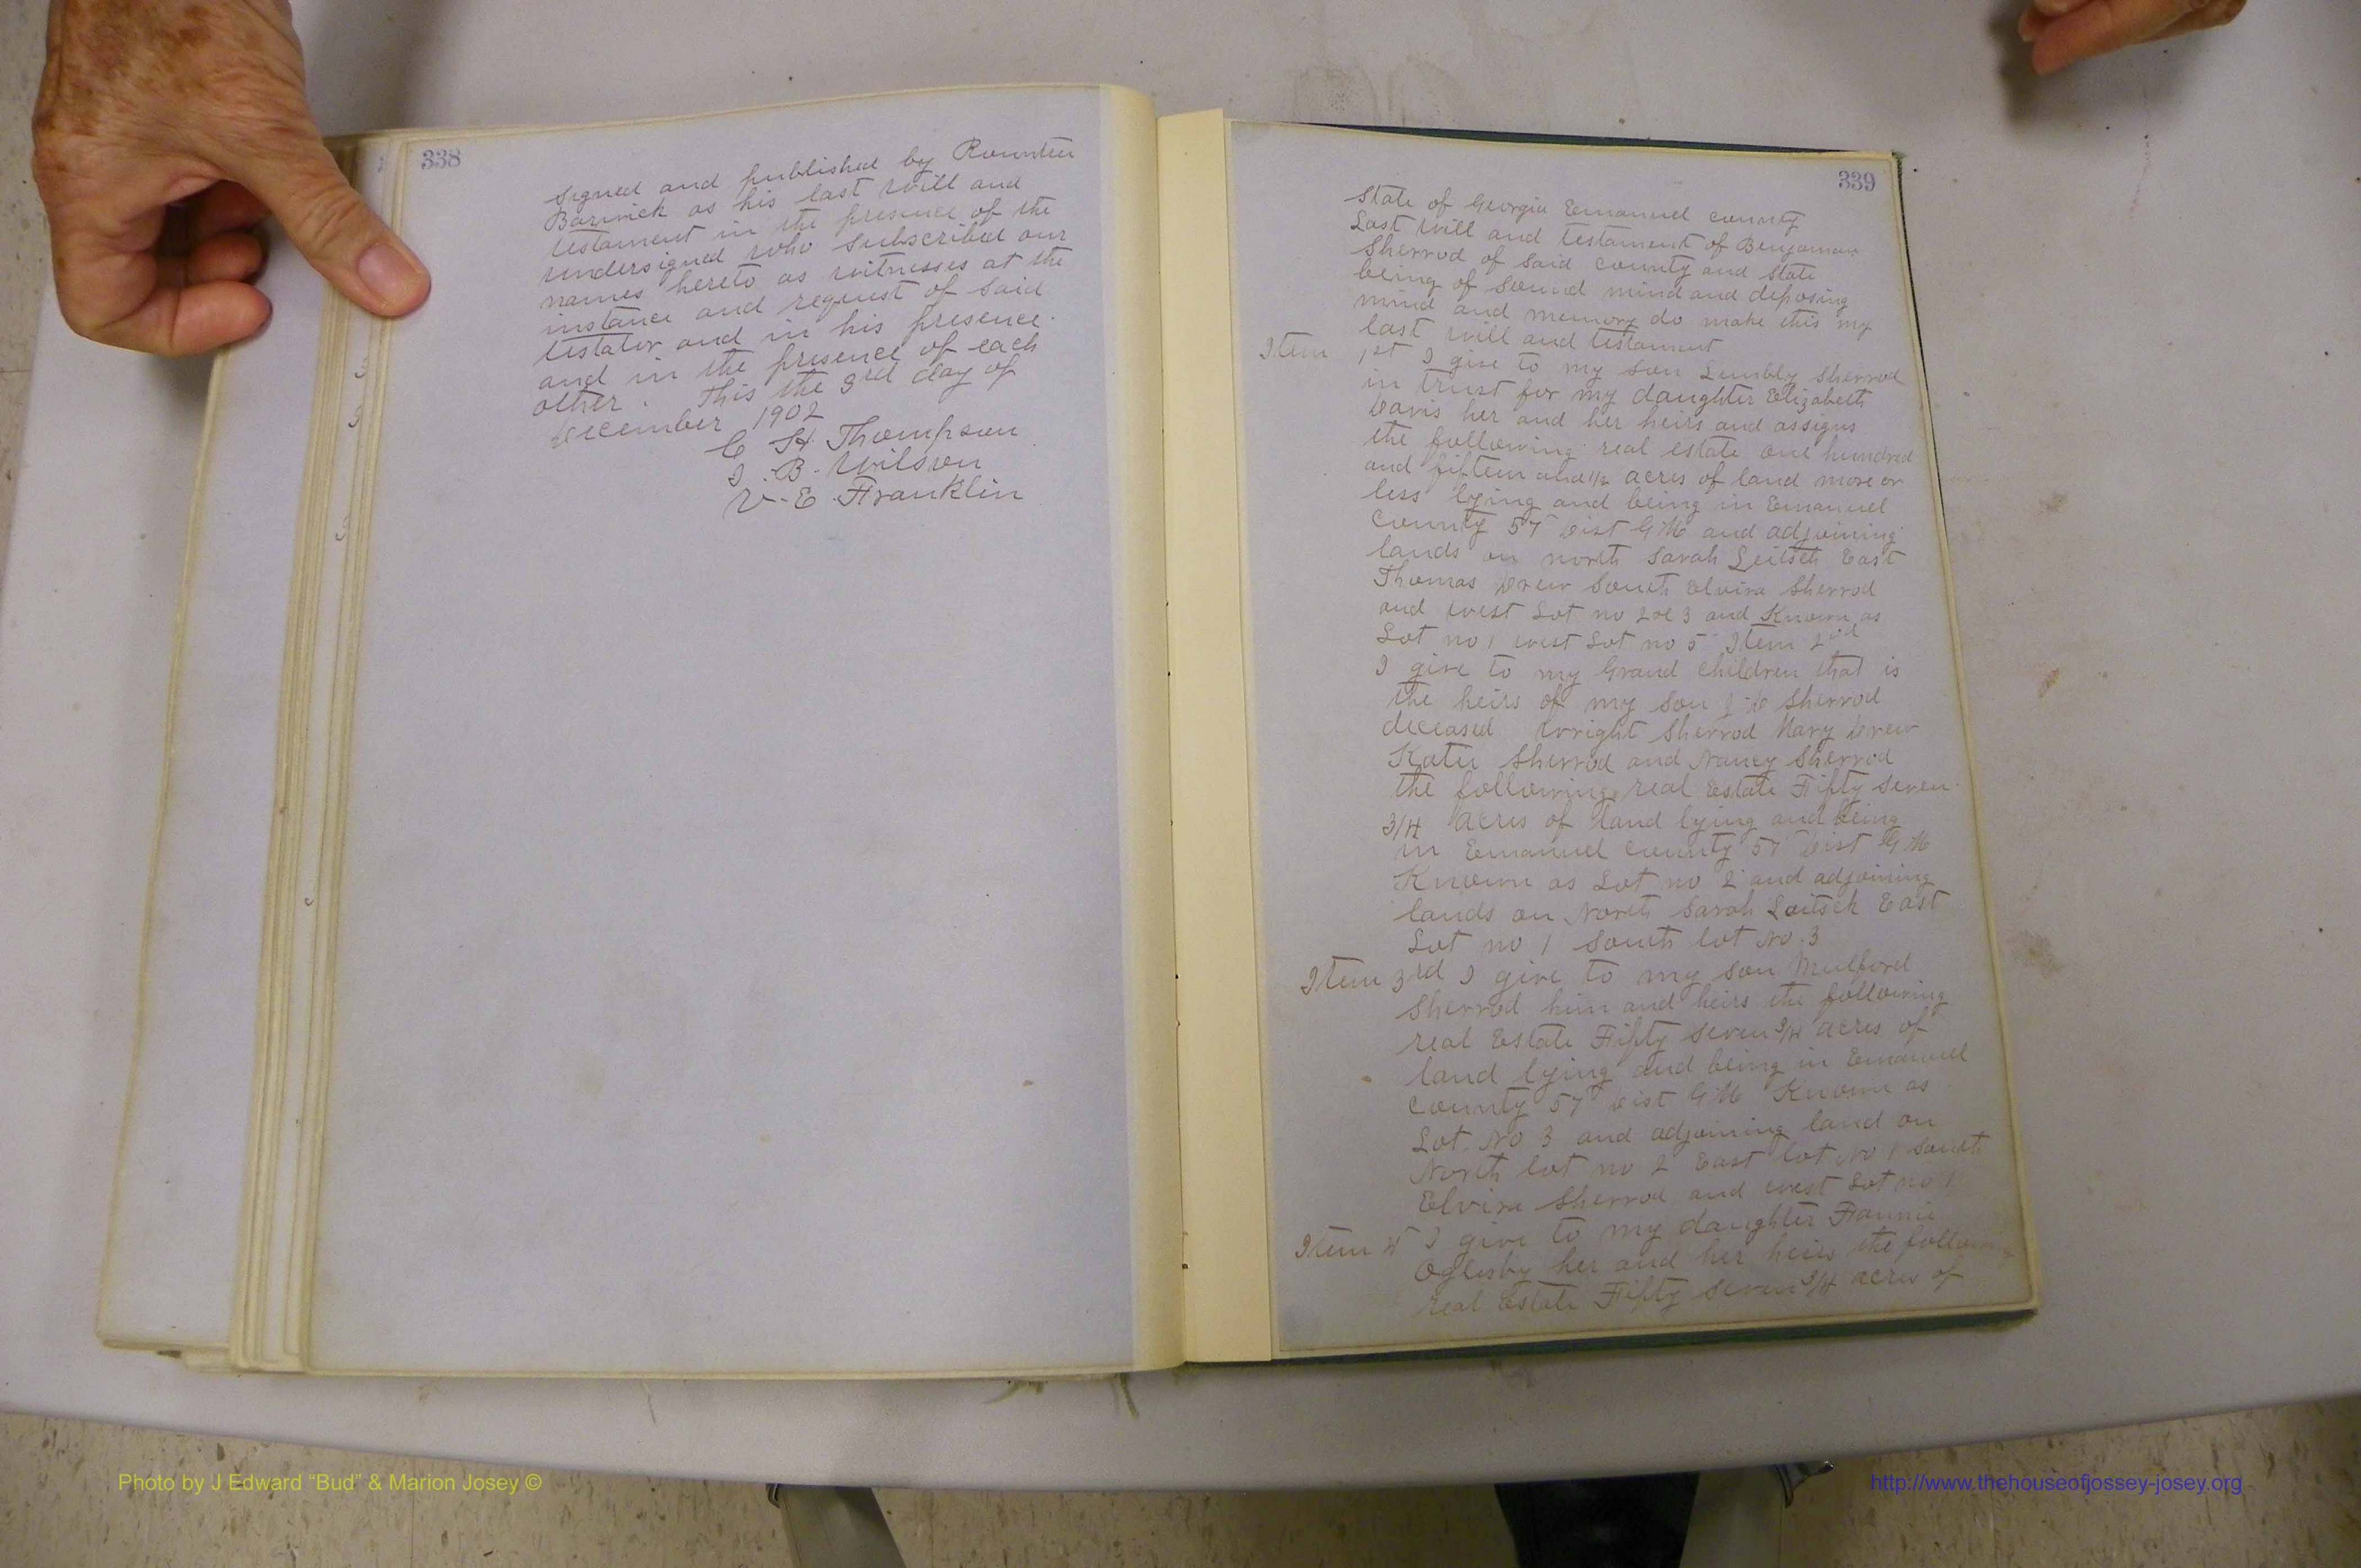 338
signed and published by Rountree
Barwick as his last will and
testament in the presence of the
undersigned who subscribed our
names hereto as witnesses at the
instance and request of said
testator and in his presence.
and in the presence of each
other. This the 3rd day of
December 1902
C H Thompson
J. B. Wilson
V. E. Franklin
339
State of Georgia Emanuel county
Last Will and testament of Benjaman
Sherrod of Said county and State
being of Sound mind and deposing
mind and memory do make this my
last will and testament
Item 1st I give to my son Sherrod
in trust for my daughter Elizabeth
Davis her and her heirs and assigns
the following real estate one hundred
and fifteen and 1/2 acres of land more or
less lying and being in Emanuel
County 57 Dist G M and adjoining
lands on north Sarah East
Thomas Drew South Elvira Sherrod
and west Lot no 2 & 3 and Known as
Lot no 1 west Lot no 5 Item 2nd
I give to my Grand children that is
the heirs of my Son Sherrod
deceased Wright Sherrod Mary Drew
Katie Sherrod and Nancy Sherrod
the following real Estate Fifty seven
3/4 acres of land lying and being
in Emanuel County 57 Dist G M
Known as Lot no 2 and adjoining
lands on North Sarah East
Lot no 1 South lot No. 3
Item 3rd I give to my son Mulford
Sherrod him and heirs the following
real Estate Fifty seven 3/4 acres of
land lying and being in Emanuel
County 57 Dist G M Known as
Lot No 3 and adjoining land on
North lot no 2 East lot No 1 South
Elvira Sherrod and west Lot no 1
Item 4 I give to my daughter Fannie
Oglesby her and her heirs the following
real Estate Fifty seven 3/4 acres of
Photo by J Edward “Bud” & Marion Josey ©
http://www.thehouseofjossey-josey.org